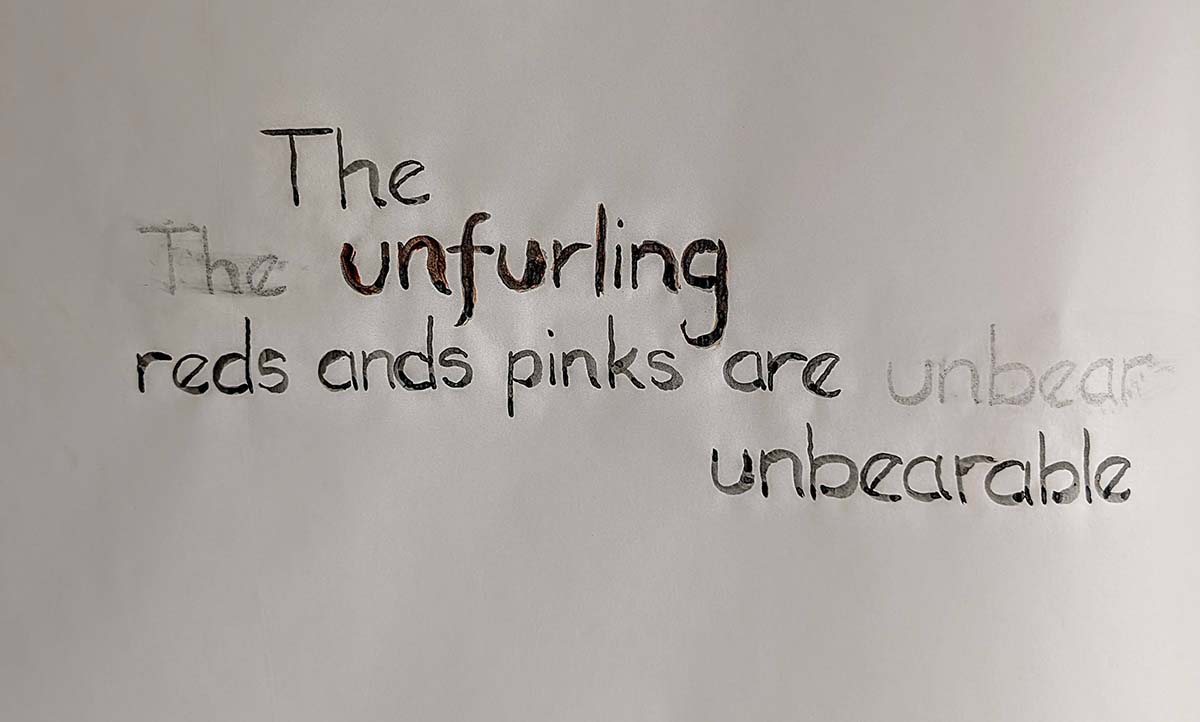 The
The unfurling
reds ands pinks are unbear
unbearable